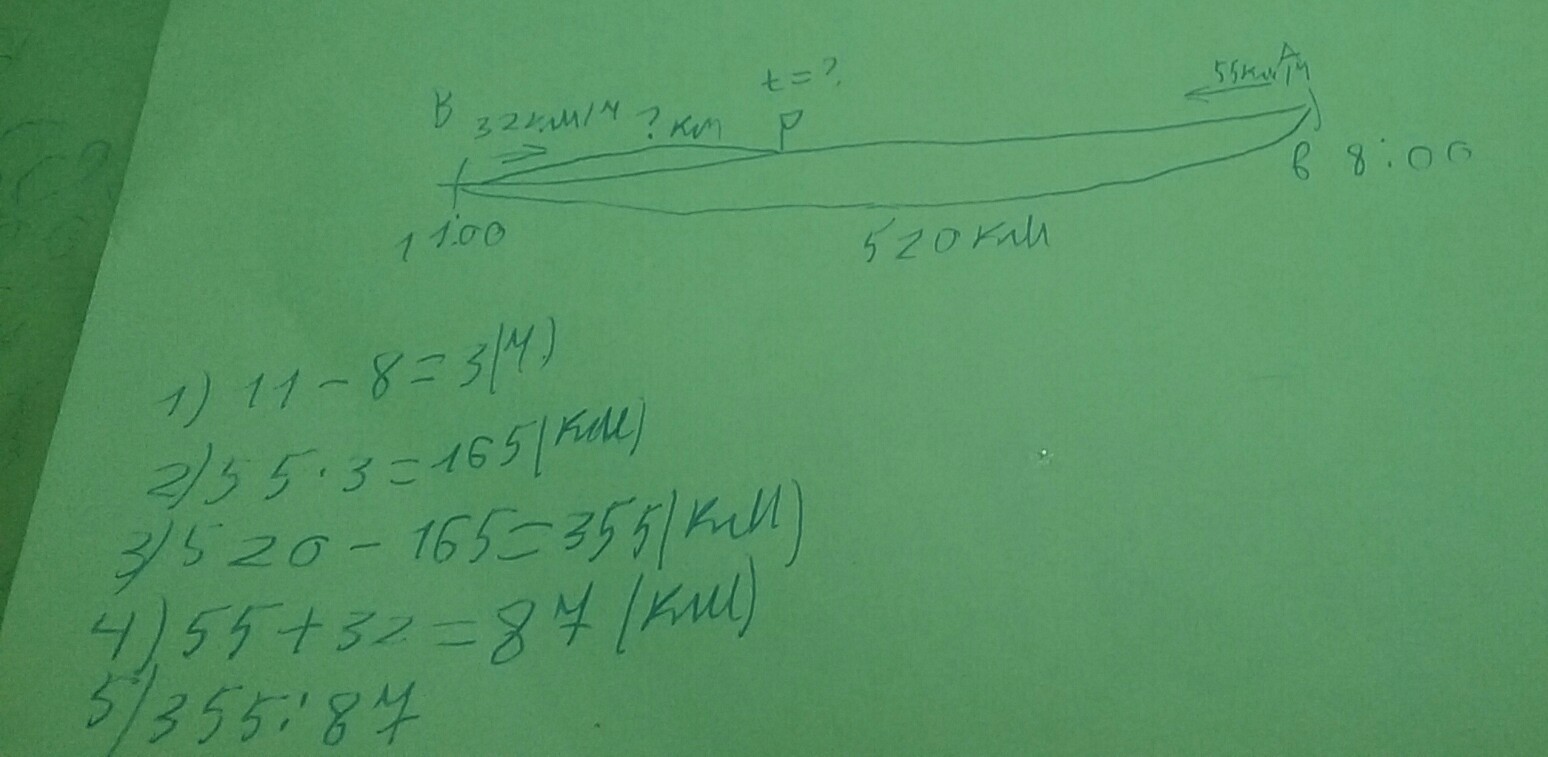 t = ?
55км/ч
А
В 32км/ч ? км
в 8:00
11:00
520 км
1) 11 - 8 = 3(ч)
2) 55 · 3 = 165(км)
3) 520 - 165 = 355(км)
4) 55 + 32 = 87 (км)
5) 355 : 87